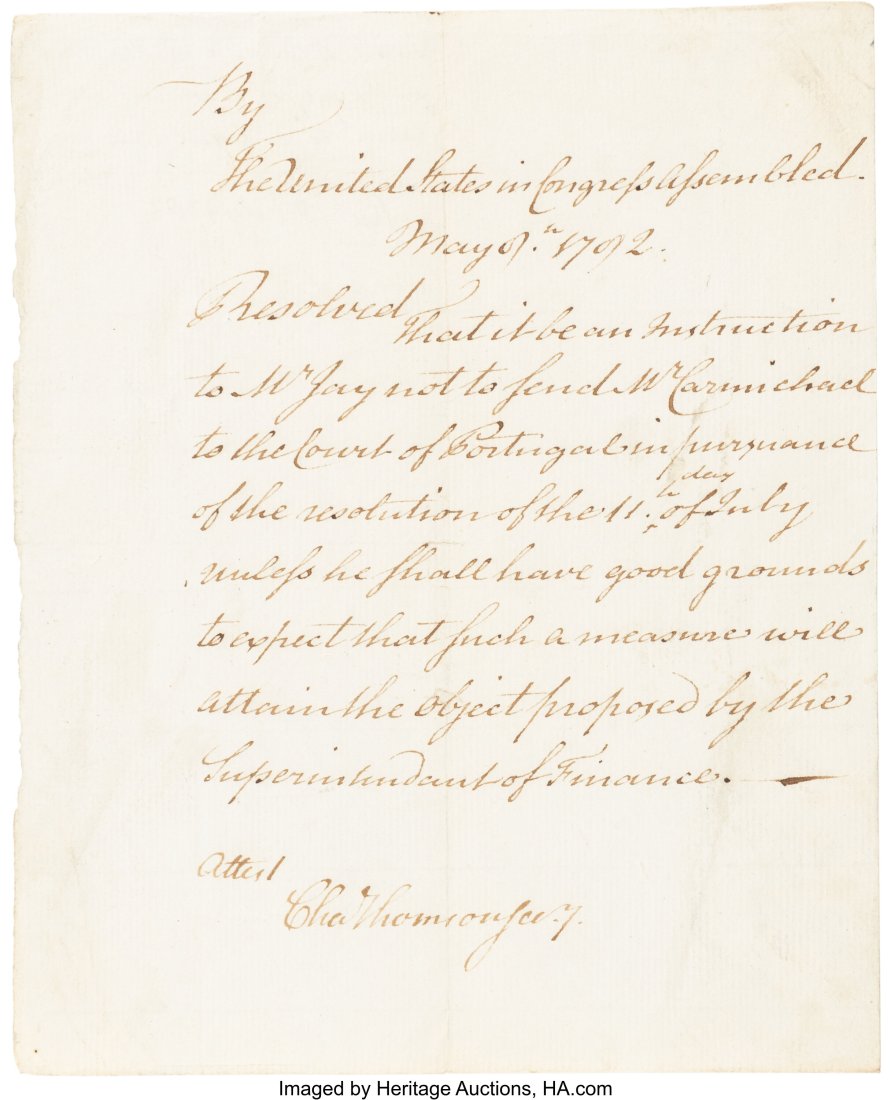 By
The United States in Congress Assembled.
May 8.th 1782.
Resolved That it be an Instruction
to Mr Jay not to send Mr Carmichael
to the Court of Portugal in pursuance
day
of the resolution of the 11.th of July
unless he shall have good grounds
to expect that such a measure will
attain the object proposed by the
Superintendant of Finance.
Attest
Chas Thomson secy.
Imaged by Heritage Auctions, HA.com